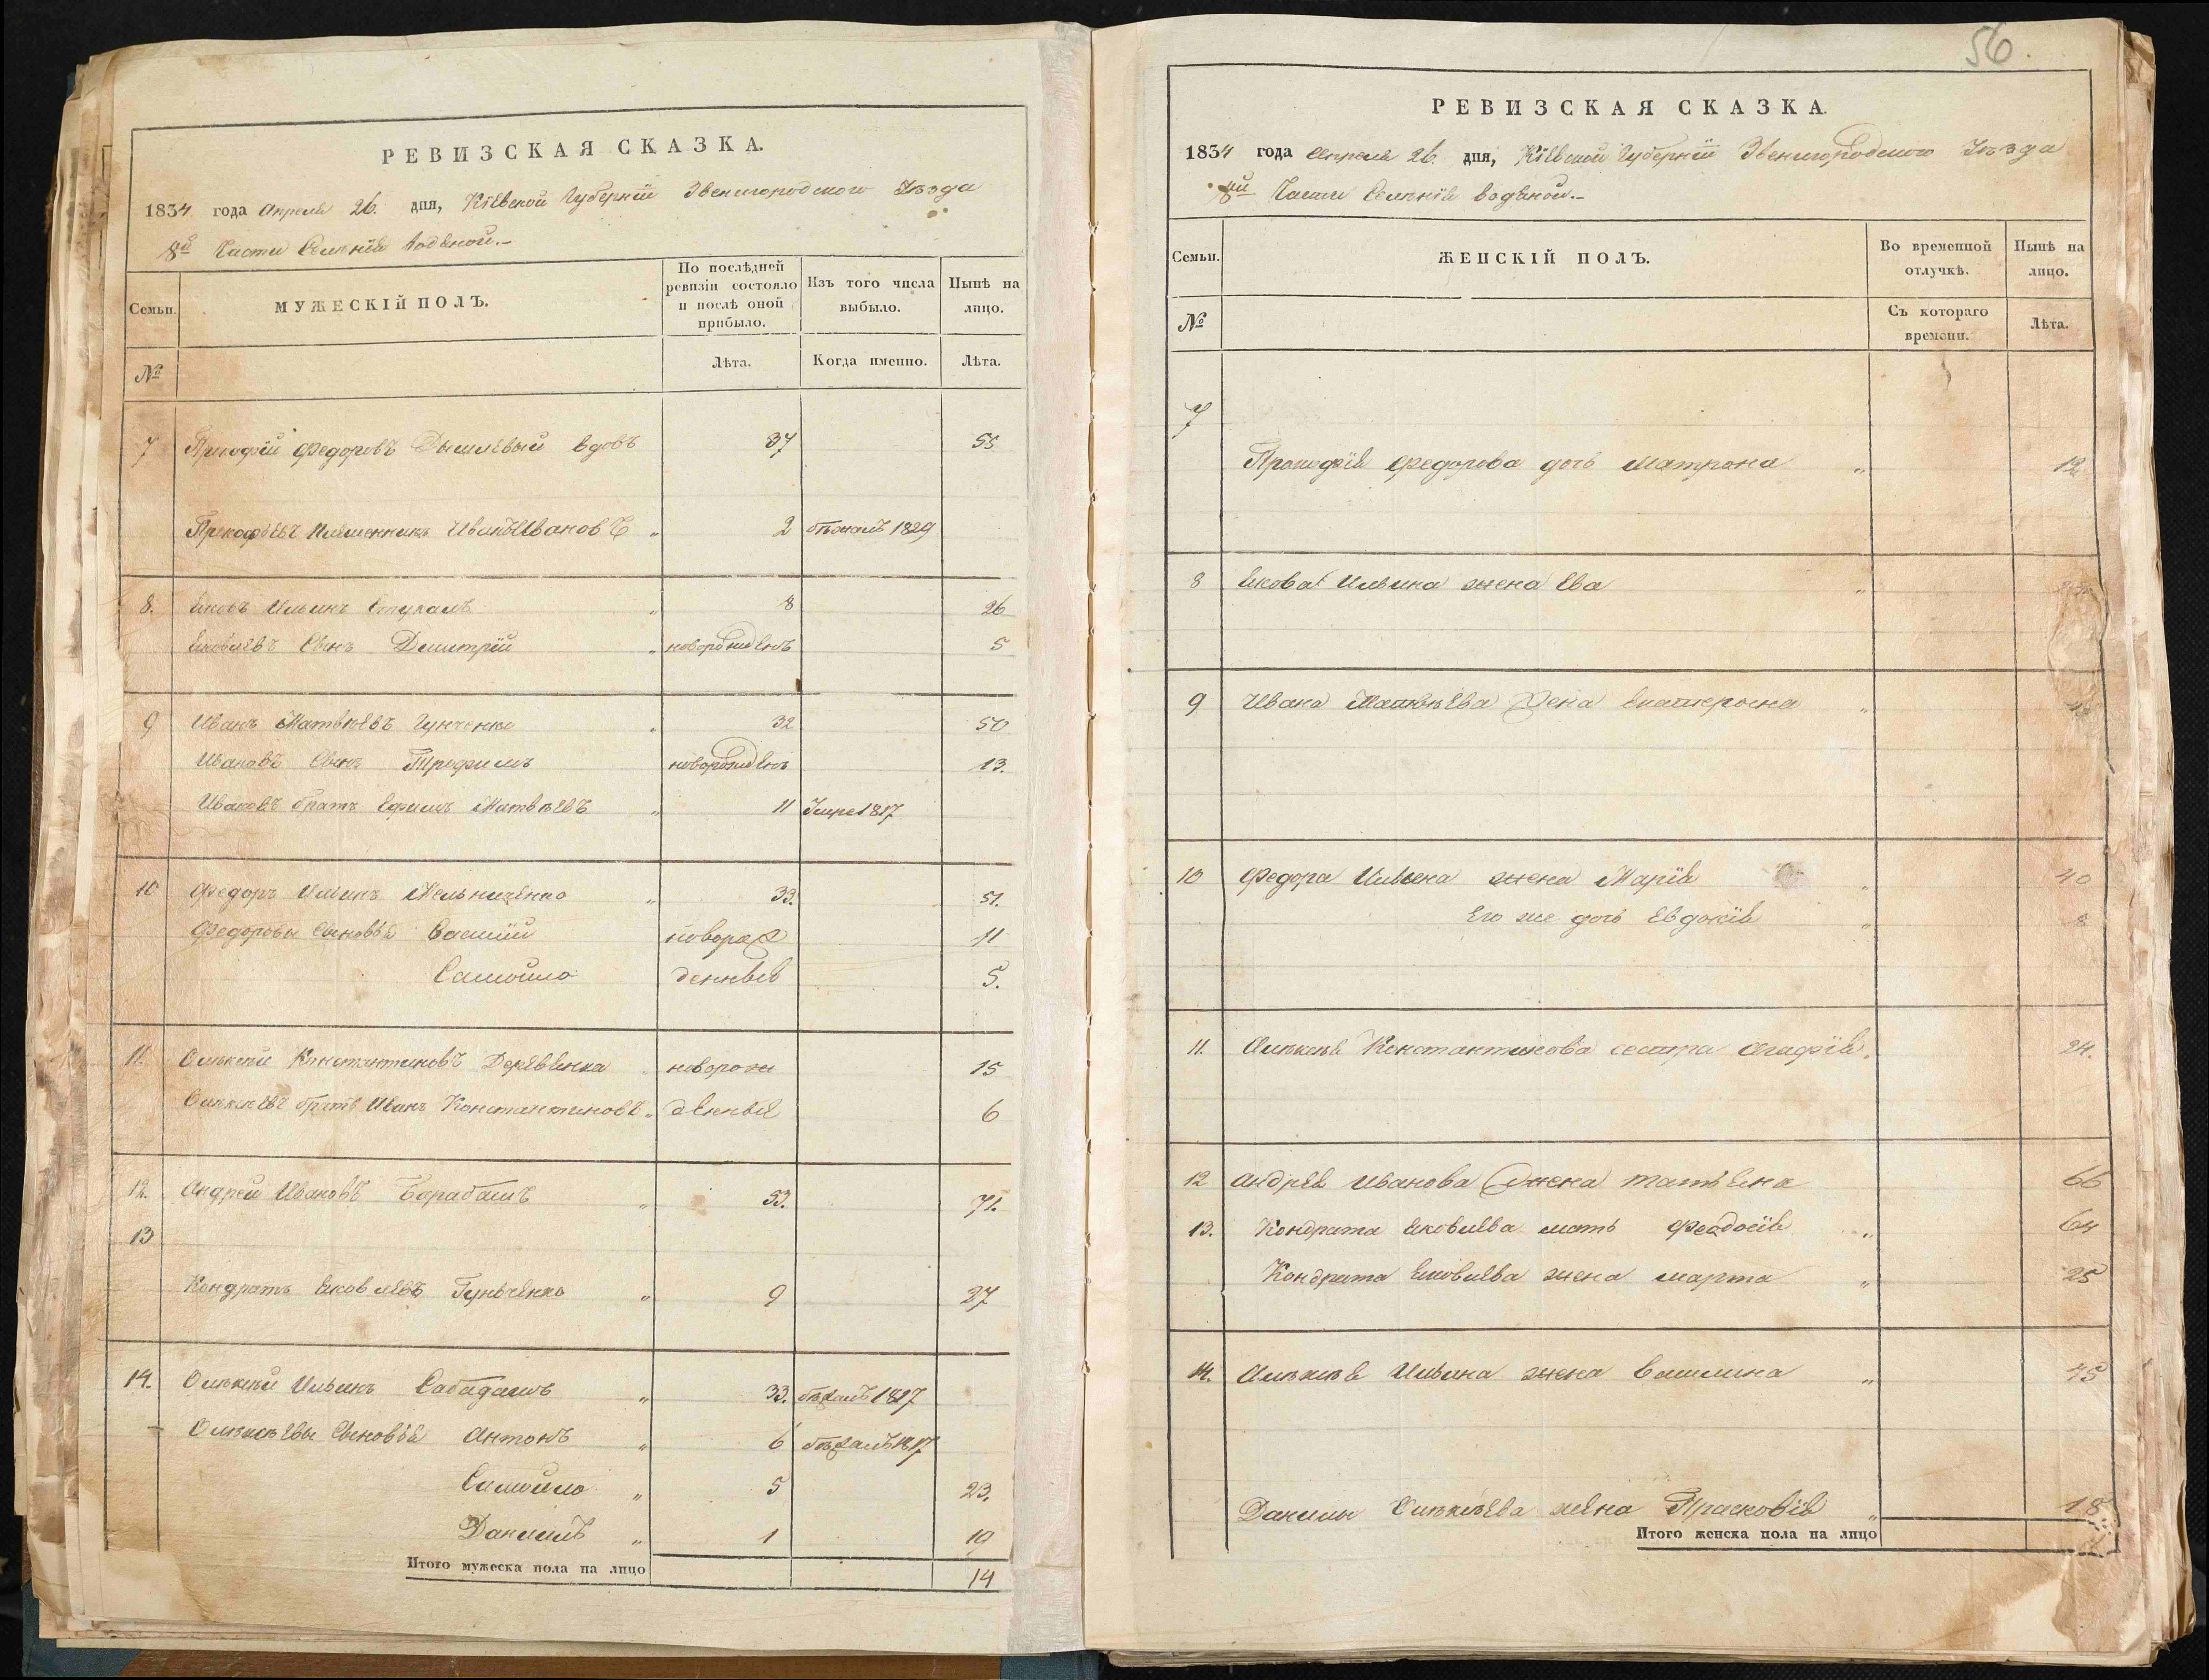 РЕВИЗСКАЯ СКАЗКА.
1834 года Апреля 26. дня, Кіевской Губерніи Звенигородского Уѣзда
8й Части Селенія Водяной.-
Семьи.
МУЖЕСКІЙ ПОЛЪ.
По послѣдней ревизіи состояло и послѣ оной прибыло.
Изъ того числа выбыло.
Нынѣ на лицо.
№
Лѣта.
Когда именно.
Лѣта.
7 Прокофій Федоровъ Дышлевый вдовъ 37 55
Прокофьевъ племенникъ Иванъ Ивановъ „ 2 бѣжалъ 1829
8. Яковъ Ильинъ „ 8 26
Яковлевъ Сынъ Дмитрій „ новорожденъ 5
9 Иванъ Матвѣевъ Гунченко „ 32 50
Ивановъ Сынъ Трофимъ новорожденъ 13.
Ивановъ братъ Ефимъ Матвѣевъ „ 11 Умре 1817
10 Федоръ Ильинъ Мельниченко „ 33. 51.
Федоровы Сыновья Василій новорож 11
Самойло денныя 5.
11. Олексѣй Константиновъ Деревянка новорож 15
Олексѣевъ братъ Иванъ Константиновъ „ денные 6
12. Андрей Ивановъ Барабашъ „ 53. 71.
13
Кондратъ Яковлевъ Гуньченко „ 9 27
14. Олексѣй Ильинъ Сабадашъ „ 33. бѣжалъ 1817
Олексѣевы Сыновья Антонъ „ 6 бѣжалъ 1817
Самойло „ 5 23.
Данилъ „ 1 19
Итого мужеска пола на лицо 14
56.
РЕВИЗСКАЯ СКАЗКА.
1834 года Апреля 26. дня, Кіевской Губерніи Звенигородского Уѣзда
8й Части Селенія Водяной.-
Семьи.
ЖЕНСКІЙ ПОЛЪ.
Во временной отлучкѣ.
Нынѣ на лицо.
№
Съ котораго времени.
Лѣта.
7
Прокофія Федорова дочь Матрона „ 12
8 Якова Ильина жена Ева „
9 Ивана Матвѣева Жена Екатерина „
10 Федора Ильина жена Марія „ 40
Его же дочь Евдокія „ 8
11. Олексѣя Константинова сестра Агафія „ 24.
12 Андрея Иванова Жена Татьяна 66
13. Кондрата Яковлева мать Феодосія „ 64
Кондрата Яковлева жена Марта „ 25
14. Олексѣя Ильина жена „ 45
Данилы Олексѣева жена Прасковія „ 18.
Итого женска пола на лицо